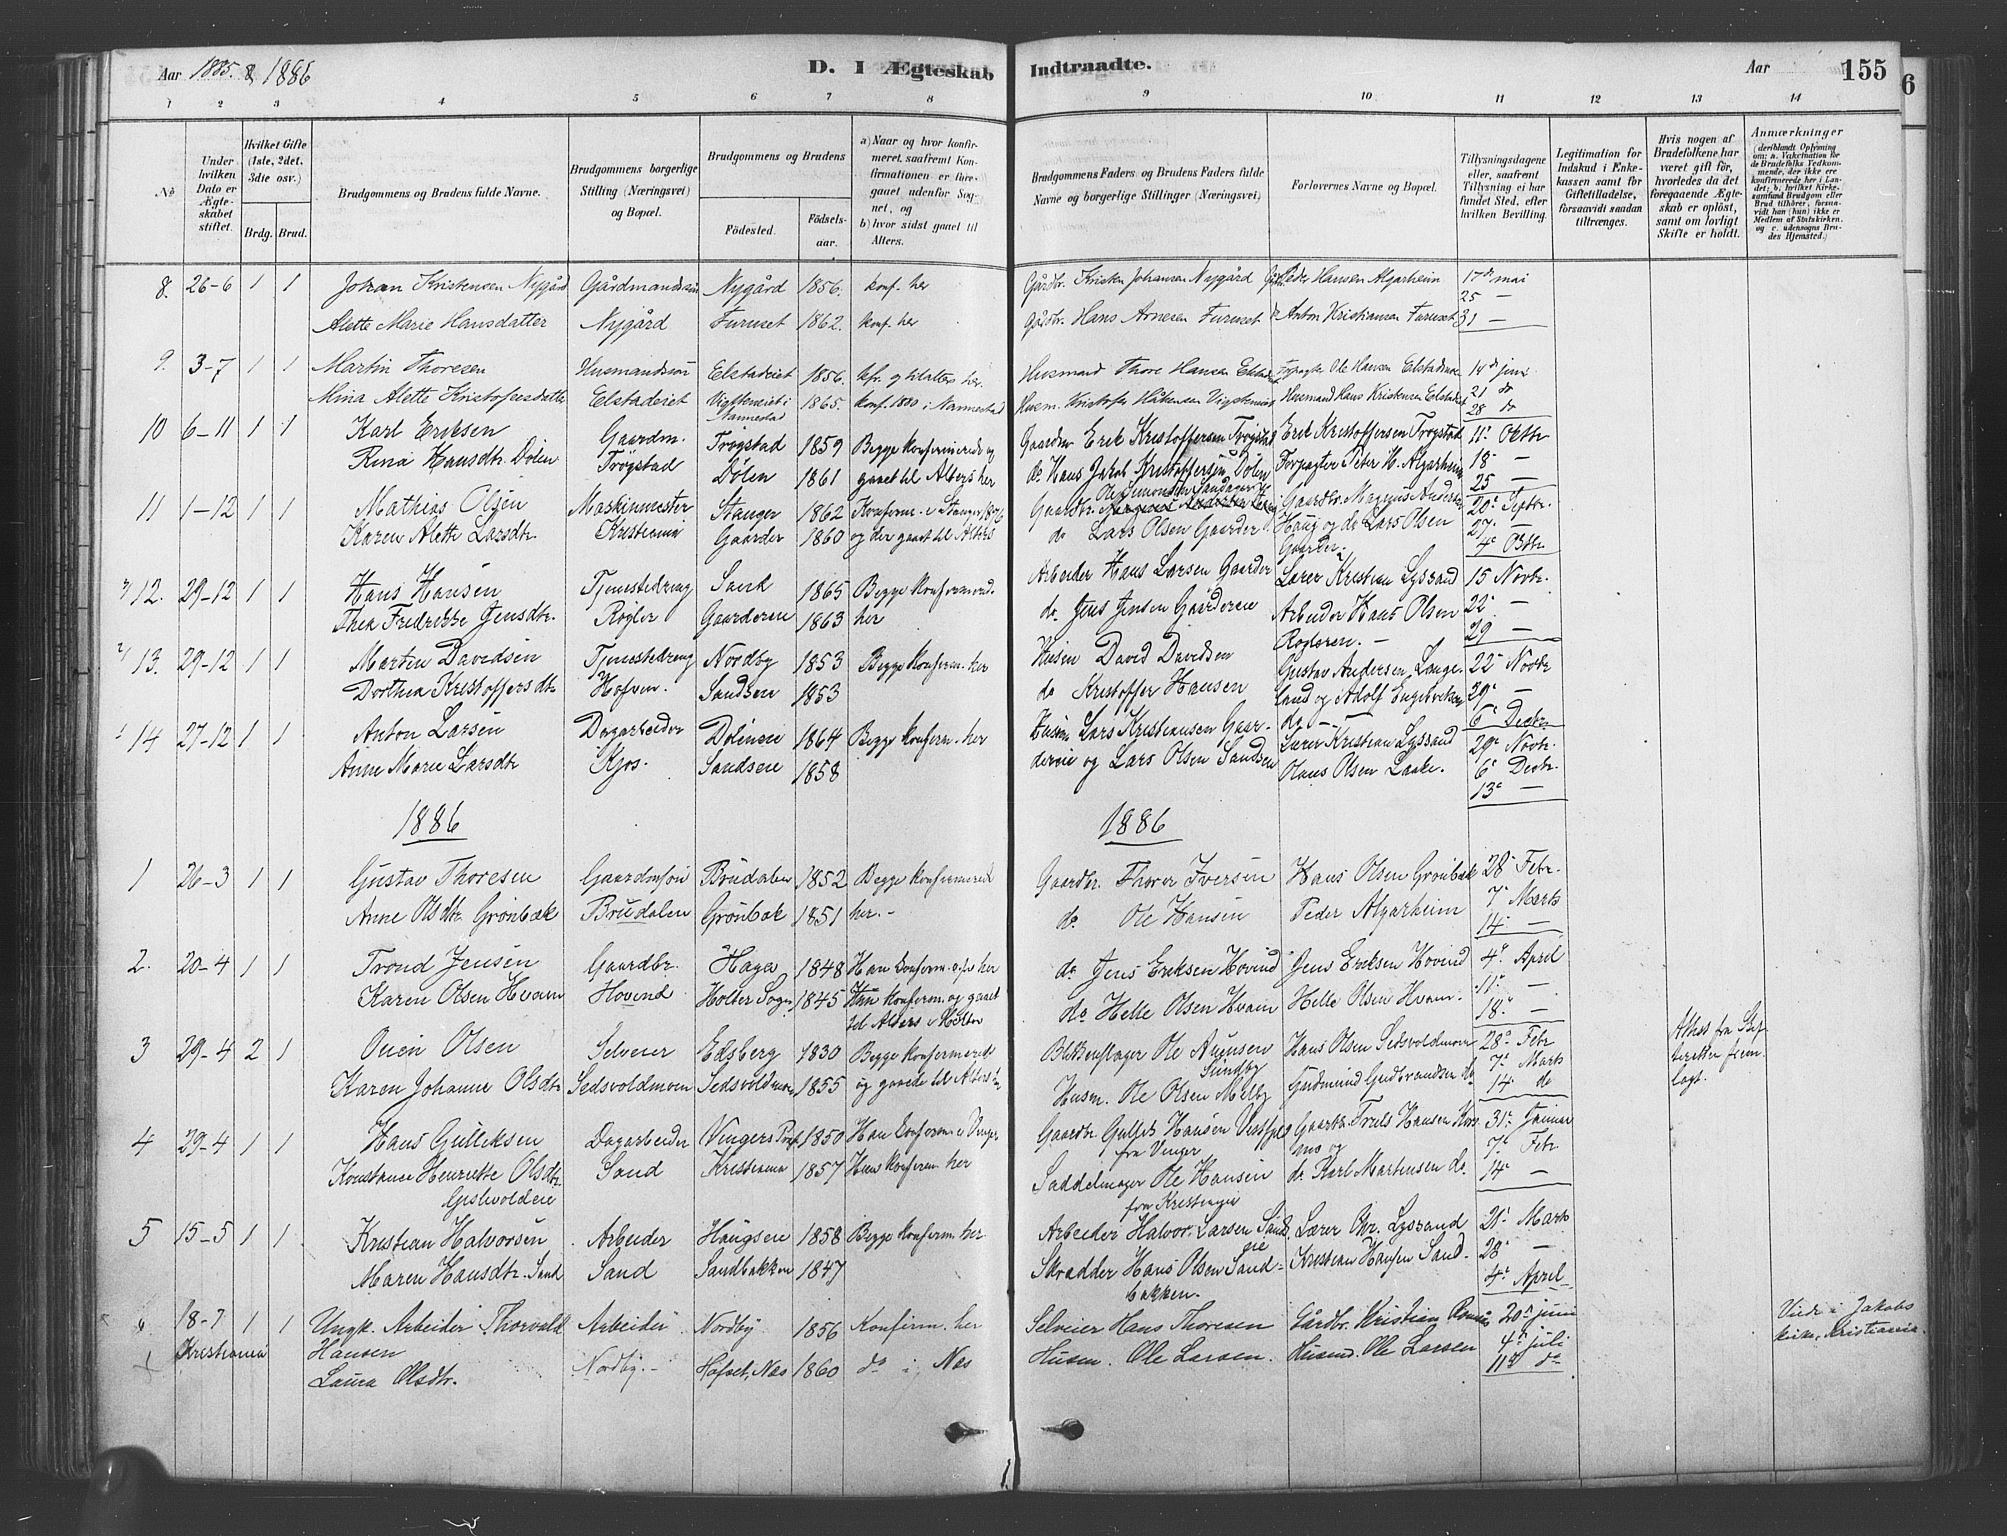 Aar 1885. & 1886
D. I Ægteskab Indtraadte.
Aar
155
6
1 2 3 4 5 6 7 8 9 10 11 12 13 14
No
Under hvilken Dato er Ægteskabet stiftet.
Hvilket Gifte (1ste, 2det, 3die osv.)
Brdg. Brud.
Brudgommens og Brudens fulde Navne.
Brudgommens borgerlige Stilling (Næringsvei) og Bopæl.
Brudgommens og Brudens
Fødested. Fødselsaar.
a) Naar og hvor konfirmeret, saafremt Konfirmationen er foregaaet udenfor Sognet, og
b) hvor sidst gaaet til Alters.
Brudgommens Faders og Brudens Faders fulde Navne og borgerlige Stillinger (Næringsvei)
Forlovernes Navne og Bopæl.
Tillysningsdagene eller, saafremt Tillysning ei har fundet Sted, efter hvilken Bevilling.
Legitimation for Indskud i Enkekassen samt for Giftetilladelse, forsaavidt saadan tiltrænges.
Hvis nogen af Brudefolkene har været gift før, hvorledes da det foregaaende Ægteskab er opløst, samt om lovligt Skifte er holdt.
Anmærkninger (deriblandt Oplysning om: a. Vakcination for de Brudefolks Vedkommende, der ikke ere konfirmerede her i Landet; b. hvilket Kirkesamfund Brudgom eller Brud tilhører, forsaavidt han (hun) ikke er Medlem af Statskirken, og c. udensogns Brudes Hjemsted.)
8. 26-6 1 1 Johan Kristensen Nygård Gårdmandssøn Nygård 1856. konf. her Gårdbr. Kristen Johansen Nygård Peder Hansen Algarheim 17de mai
25 —
Alette Marie Hansdatter Nygård Furuset 1862. konf. her Gårdbr. Hans Arnesen Furuset Anton Kristiansen Furuset 31 —
9. 3-7 1 1 Martin Thoresen Husmandssøn Elstadeiet 1856. kfr. og til alters her. Husmand Thore Hansen Ole Hansen 14de juni
Mina Alette Kristofersdatter Elstadeiet Vigsteneiet i Nannestad 1865. konf. 1880 i Nannestad Husm. Kristofer Husmand Hans Kristensen 21 do
28 do
10 6-11 1 1 Karl Eriksen Gaardm. Trøgstad 1859 Begge konfirmerede og Gaardm Erik Kristoffersen Trøgstad Erik Kristoffersen Trøgstad 11te Oktbr
Rina Hansdtr. Dølen Trøgstad Dølen 1861 gaaet til Alters her do. Hans Jakob Kristoffersen Dølen Forpagter Peter H. Algarheim 18 —
25 —
11 1-12 1 1 Mathias Olsen Maskinmester Stange 1862 Konfirm. i Stange 1876 Gaardbr. Ole Simonsen Gaardbr. Magnus Anders 20de Septbr.
Karen Alette Larsdtr. Kristiania Gaarder 1860 og der gaaet til Alters do Lars Olsen Gaarder Haug og do Lars Olsen Gaarder. 27 —
4de Oktbr
12. 29-12 1 1 Hans Hansen Tjenestedreng Sand 1865 Begge konfirmered. Arbeider Hans Larsen Gaarder Lærer Kristian Lyssand 15 Novbr.
Thea Fredrikke Jensdtr. Røgler Gaarderen 1863 her do. Jens Jensen Gaarderen Arbeider Hans Olsen Rogleren. — 22 —
29 —
13. 29-12 1 1 Martin Davidsen Tjenestedreng Nordby 1853 Begge konfirm. her Husm David Davidsen Gustav Andersen Langeland og Adolf 22 Novbr
Dorthea Kristoffersdtr Hofven. Sandseie 1853 do Kristoffer Hansen do — 29 —
6 Decbr.
14 27-12 1 1 Anton Larsen Dagarbeider Døleneie 1864 Begge konfirm. her Husm Lars Kristiansen Gaar- Lærer Kristian Lyssand 29de Novbr
Anne Marie Larsdtr Kjos. Sandseie 1858 dereie og Lars Olsen Sandseie Hans Olsen Laake. 6 Decbr.
13de —
1886
1886
1 26-3 1 1 Gustav Thoresen Gaardmsøn Brudalen 1852 Begge konfirmerede Gaardbr. Thorer Iversen Hans Olsen Grønbæk 28 Febr.
Anne Olsdtr Grønbæk Brudalen Grønbæk 1851 her. — do Ole Hansen Peder Algarheim 7 Marts
14 —
2. 20-4 1 1 Trond Jensen Gaardbr. Haga 1848 Han konfirm. her do Jens Eriksen Hovind Jens Eriksen Hovind 4de April
Karen Olsen Hvam Hovind Holter Sogn 1845 Hun konfirm. og gaaet til Alters i Holter do Helle Olsen Hvam Helle Olsen Hvam. 11 —
18 —
3 29-4 2 1 Olsen Selveier Edsberg 1830 Begge konfirmered Blikkenslager Ole Sundby Hans Olsen Sedsvoldmoen 28de Febr
Karen Johanne Olsdtr Sedsvoldmoen Sedsvoldmoen 1855 og gaaede til Alters her Husm. Ole Olsen Melby Gudmund Gudbrandsen do 7de Marts
14 do
Attest fra Skifteretten fremlagt.
4 29-4 1 1 Hans Gulliksen Dagarbeider Vingers Præst. 1850 Han konfirm. i Vinger Gaardbr Hansen fra Vinger Gaardbr. Troels Hansen og 31te Januar
Konstance Henriette Olsdtr. Sand Kristiania 1857 Hun konfirm. her Saddelmager Ole Hansen fra Kristiania do. Karl Martinsen do. 7de Febr
14de —
5 15-5 1 1 Kristian Halvorsen Arbeider Haugseie 1858 Begge konfirm. her Arbeider Halvor Larsen Sandseie Lærer Chr. Lyssand 21 Marts
Maren Hansdtr. Sand Sand Sandbakken 1847 Skrædder Hans Olsen Sandbakken. Kristian Hansen Sand. 28 —
4 April
6 18-7 1 1 Ungk. Arbeider Thorvald Hansen Arbeider Nordby 1856 Konfirm. her Selveier Hans Thoresen Gårdbr. Kristian 20de juni
Kristiania 4de juli
Laura Olsdtr. Nordby. Hofset, Næs 1860 do i Næs Husm. Ole Larsen. Husm. Ole Larsen 11te do
Viede i Jakobs kirke, Kristiania.